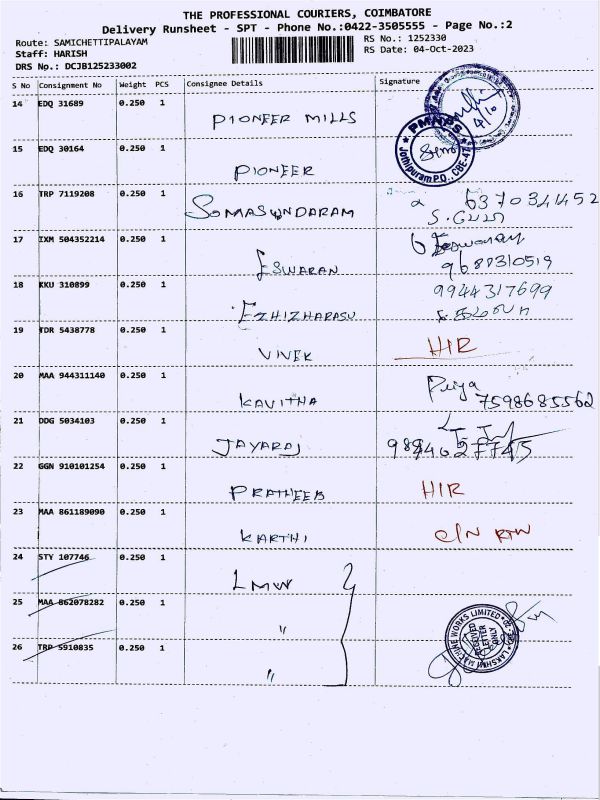 THE PROFESSIONAL COURIERS, COIMBATORE
Delivery Runsheet - SPT - Phone No.:0422-3505555 - Page No.:2
Route: SAMICHETTIPALAYAM
RS No.: 1252330
Staff: HARISH
RS Date: 04-Oct-2023
DRS No.: DCJB125233002
S No Consignment No Weight PCS Consignee Details Signature
14 EDQ 31689 0.250 1 PIONEER MILLS
4/10
PMNPS
Jothipuram P.O., CBE-47
15 EDQ 30164 0.250 1 PIONEER
16 TRP 7119208 0.250 1 SOMASUNDARAM 6370341452
17 IXM 504352214 0.250 1 ESWARAN
9688310519
18 KKU 310899 0.250 1 EZHIZHARASU 9944317699
19 TDR 5438778 0.250 1 VIVEK HIR
20 MAA 944311140 0.250 1 KAVITHA Priya
7598685562
21 DDG 5034103 0.250 1 JAYARAJ
22 GGN 910101254 0.250 1 PRATHEEB HIR
23 MAA 861189090 0.250 1 KARTHI C/N RTN
24 STY 107746 0.250 1 LMW
25 MAA 862078282 0.250 1 "
26 TRP 5910835 0.250 1 "
LAKSHMI MACHINE WORKS LIMITED
RECEIVED
LETTER
ONLY